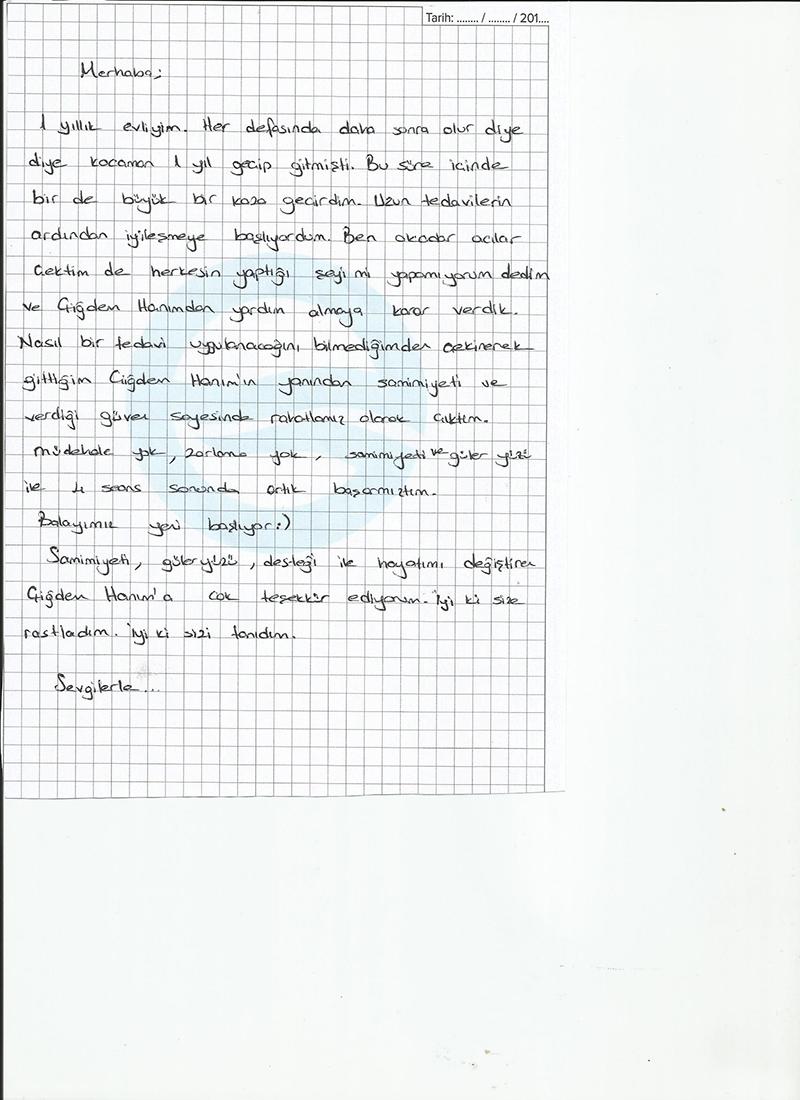 Tarih: ........ / ........ / 201....
Merhaba;
1 yıllık evliyim. Her defasında daha sonra olur diye
diye kocaman 1 yıl geçip gitmişti. Bu süre içinde
bir de büyük bir kaza geçirdim. Uzun tedavilerin
ardından iyileşmeye başlıyordum. Ben okadar acılar
çektim de herkesin yaptığı şeyi mi yapamıyorum dedim
ve Çiğdem Hanımdan yardım almaya karar verdik.
Nasıl bir tedavi uygulanacağını bilmediğimden çekinerek
gittiğim Çiğdem Hanım'ın yanından samimiyeti ve
verdiği güven sayesinde rahatlamış olarak çıktım.
müdehale yok, zorlama yok, samimiyeti ve güler yüzü
ile 4 seans sonunda artık başarmıştım.
Balayımız yeni başlıyor:)
Samimiyeti, güler yüzü, desteği ile hayatımı değiştiren
Çiğdem Hanım'a çok teşekkür ediyorum. İyi ki size
rastladım. İyi ki sizi tanıdım.
Sevgilerle...